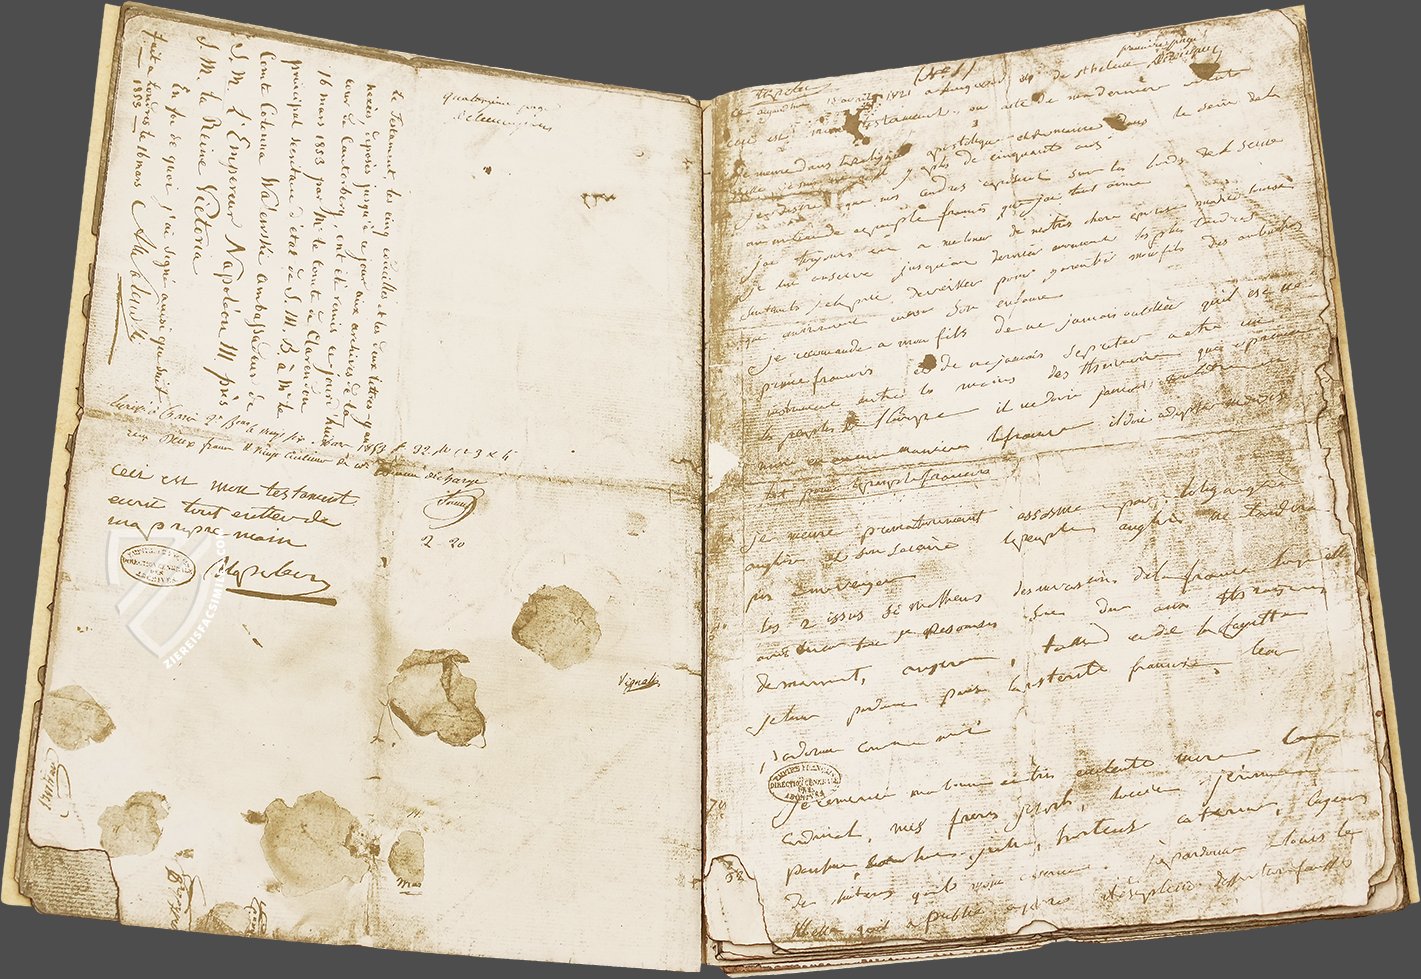 Le Testament les cinq codicilles et les deux lettres qui
déposés jusqu'à ce jour aux archives de la
cour de Cantorbery, ont été remis ce jourd'hui
16 mars 1853 par Mr le Comte de Clarendon
principal secrétaire d'état de S. M. B. à Mr le
Comte Colonna Walewski ambassadeur de
S. M. l'Empereur Napoléon III près
S. M. la Reine Victoria
En foi de quoi j'ai signé ainsi que suit
Fait à Londres le 16 mars
1853
quatorzième page
ceci est mon testament
ecrit tout entier de
ma propre main
Napoleon
2 20
Vignali
EMPIRE FRANÇAIS
DIRECTION GENERALE
DES
ARCHIVES
ZIEREISFACSIMILES.COM
première page
(No 1)
Napoleon
ce aujourd'hui 15 avril 1821 a longwood isle de ste helene
ceci est mon testament ou acte de ma derniere volonté
je meurs dans la religion apostolique et romaine dans le sein de la
quelle je suis né il y a plus de cinquante ans
je desire que mes cendres reposent sur les bords de la Seine
au milieu de ce peuple francais que j'ai tant aimé
j'ai toujours eu a me louer de ma tres chere epouse marie louise
je lui conserve jusqu'au dernier moment les plus tendres
sentiments je la prie de veiller pour garantir mon fils des embuches
qui environnent encore son enfance
je recommande a mon fils de ne jamais oublier qu'il est né
prince francais et de ne jamais se preter a etre un
instrument entre les mains des triumvirs qui oppriment
les peuples de l'europe il ne doit jamais combattre ni
nuire en aucune maniere a la france il doit adopter ma devise
tout pour le peuple francais
je meurs prematurement assassiné par l'oligarchie
anglaise et son sicaire le peuple anglais ne tardera
pas a me venger
les 2 issus si malheureuses des invasions de la france lorsqu'elle
avait encore tant de resources sont dues aux trahisons
de marmont, augereau, talleyrand et de la fayette
je leur pardonne puisse la posterité francaise leur
pardonner comme moi
EMPIRE FRANÇAIS
DIRECTION GENERALE
DES
ARCHIVES
je remercie ma bonne et tres excellente mere le
cardinal, mes freres joseph, lucien, jerome
pauline, caroline, julie, hortense, catarine, eugene
de l'interet qu'ils m'ont conservé. je pardonne a louis le
libelle qu'il a publié en 1820 il est plein d'assertions fausses